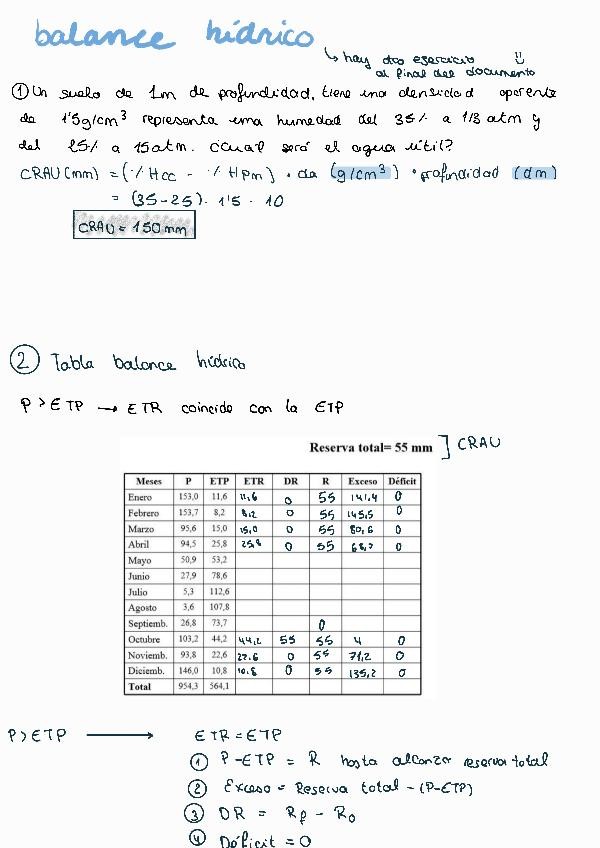 balance hídrico
↳ hay dos ejercicio
al final del documento
① Un suelo de 1m de profundidad, tiene una densidad aparente
da 1'5g/cm³ representa una humedad del 35% a 1/3 atm y
del 25% a 15 atm. ¿Cual será el agua útil?
CRAU (mm) = (% Hcc - % Hpm) · da (g/cm³) · profundidad (dm)
= (35-25) · 1'5 · 10
CRAU = 150 mm
② Tabla balance hídrico
P > ETP → ETR coincide con la ETP
Reserva total= 55 mm ] CRAU
Meses P ETP ETR DR R Exceso Déficit
Enero 153,0 11,6 11,6 0 55 141,4 0
Febrero 153,7 8,2 8,2 0 55 145,5 0
Marzo 95,6 15,0 15,0 0 55 80,6 0
Abril 94,5 25,8 25,8 0 55 68,7 0
Mayo 50,9 53,2
Junio 27,9 78,6
Julio 5,3 112,6
Agosto 3,6 107,8
Septiemb. 26,8 73,7 0
Octubre 103,2 44,2 44,2 55 55 4 0
Noviemb. 93,8 22,6 22,6 0 55 71,2 0
Diciemb. 146,0 10,8 10,8 0 55 135,2 0
Total 954,3 564,1
P > ETP → ETR = ETP
① P - ETP = R hasta alcanzar reserva total
② Exceso = Reserva total - (P-ETP)
③ DR = Rf - Ro
④ Déficit = 0